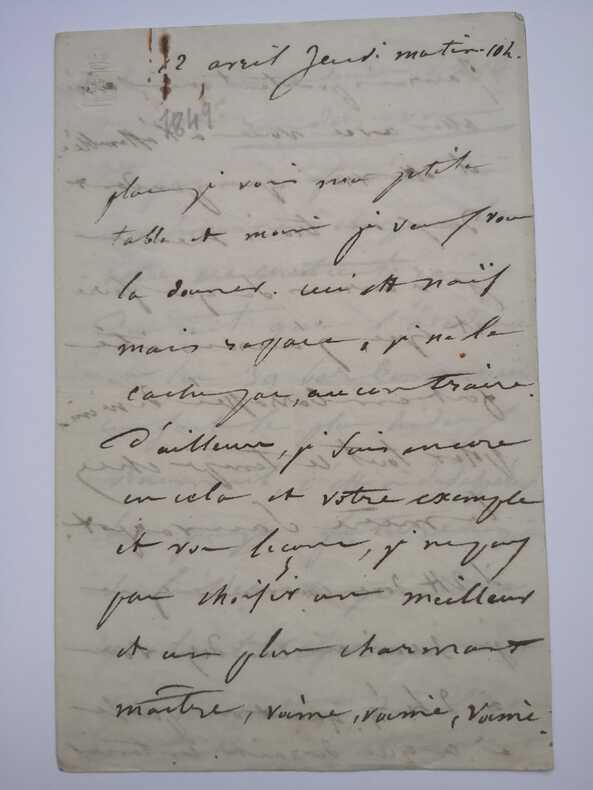 12 avril Jeudi matin. 10h.
1849
plus je vois ma petite
table et moins je veux vous
la donner. ceci est naïf
mais rapace, je ne le
cache pas, au contraire.
D'ailleurs, je suis encore
en cela et votre exemple
et vos leçons, je ne puis
pas choisir un meilleur
et un plus charmant
maître,